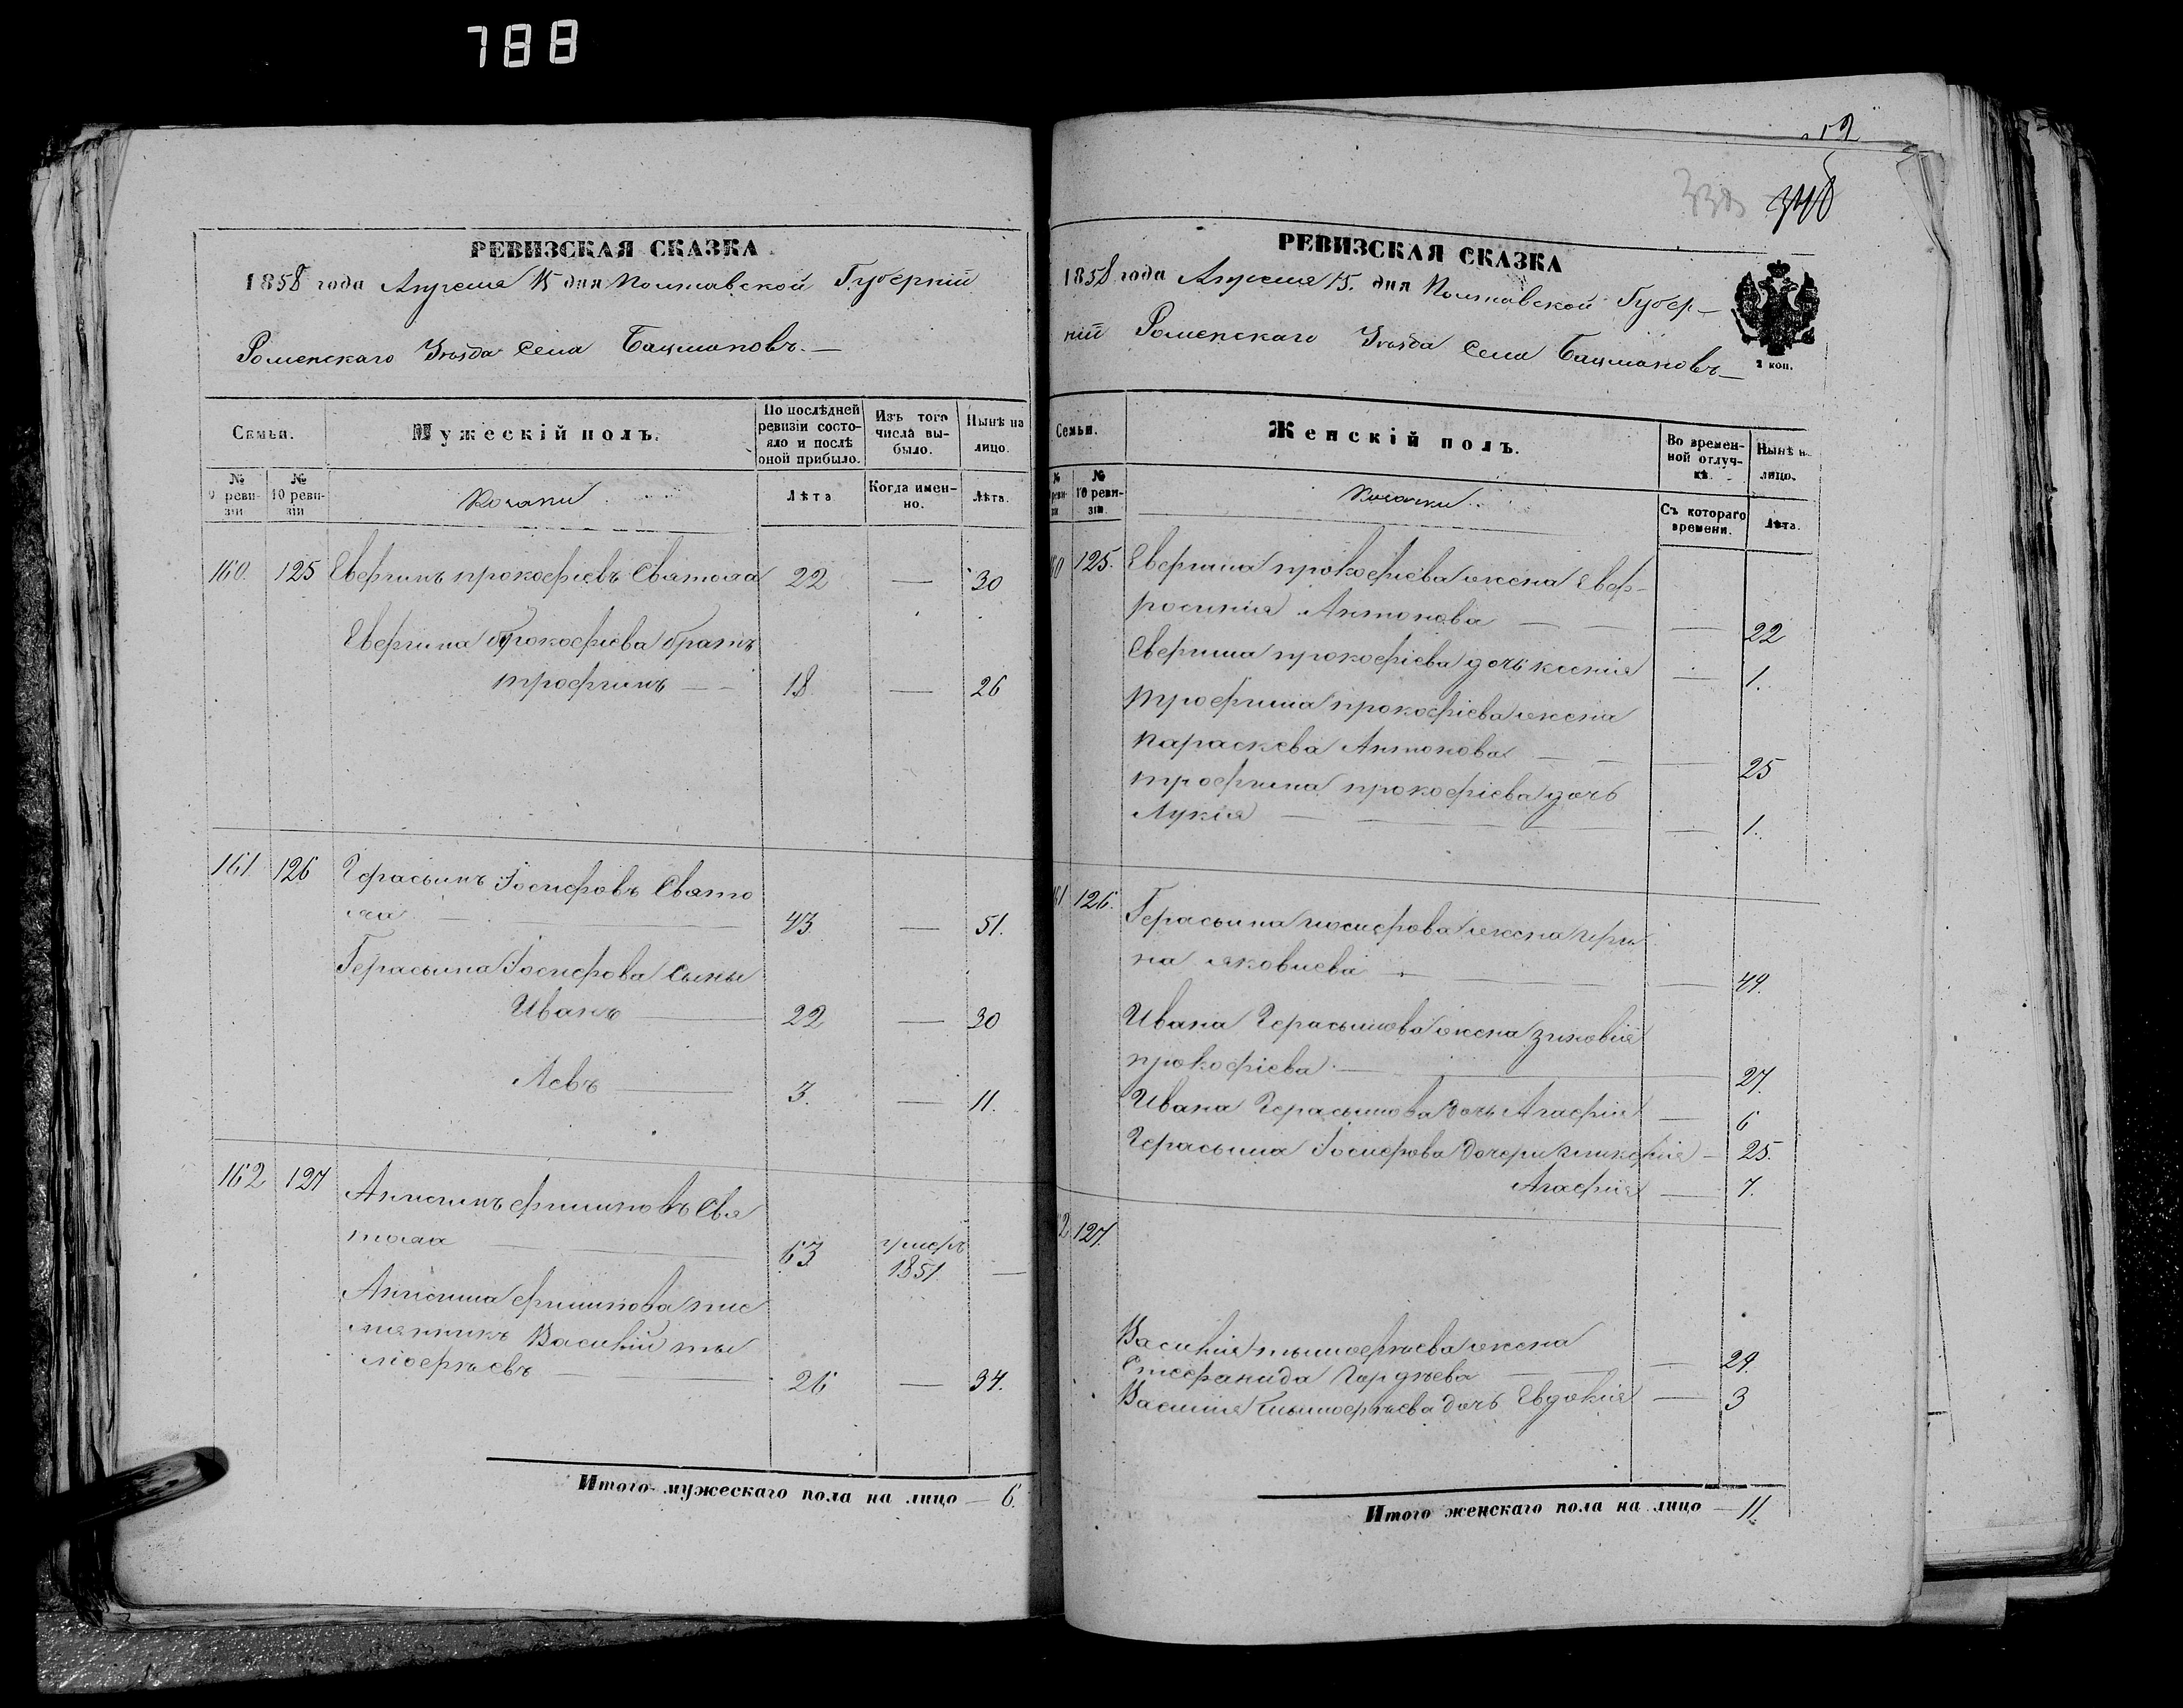 788
РЕВИЗСКАЯ СКАЗКА
1858 года Апреля 15 дня Полтавской Губерніи
Роменскаго Уезда Села Бацмановъ.—
Семьи.
Мужескій полъ.
По послѣдней ревизіи состояло и послѣ оной прибыло.
Изъ того числа выбыло.
Нынѣ на лицо.
№ 9 ревизіи
№ 10 ревизіи
Козаки
Лѣта
Когда именно.
Лѣта.
160. 125 Евфимъ прокофіевъ Святоха 22 — 30
Евфима Прокофіева братъ
трофимъ — — 18 — 26
161 126 Герасимъ Іосифовъ Свято
ха — 43 — 51.
Герасыма Іосифова Сыны
Иванъ — 22 — 30
Левъ — 3. — 11.
162 127 Анисимъ филиповъ Свя
тоха — 63 умеръ 1851 —
Анисима филипова пле
мянникъ Василій ты
мофеевъ — 26 — 34.
Итого мужескаго пола на лицо — 6.
52
РЕВИЗСКАЯ СКАЗКА
1858 года Апреля 15. дня Полтавской Губер—
ніи Роменскаго Уезда Села Бацмановъ—
2 коп.
Семьи.
Женскій полъ.
Во временной отлучкѣ.
Нынѣ на лицо.
№ реви зіи
№ 10 ревизіи.
Козачки
Съ котораго времени.
Лѣта.
60 125. Евфима прокофіева жена Евф-
росинія Антонова — — — 22
Евфима прокофіева дочь ксенія — 1.
трофима прокофіева жена
параскева Антонова — — — 25
трофима прокофіева дочь
Лукія — — — 1.
61 126. Герасыма иосифова жена ири
на яковлева — — 49.
Ивана Герасымова жена зиновія
прокофіева — 27.
Ивана Герасымова дочь Агафія — 6
Герасыма Іосифова дочери гликерія — 25.
Агафія — 7.
2 127.
Василія тымофеева жена
Стефанида Гордѣева — — 29.
Василія тымофеева дочь Евдокія — 3
Итого женскаго пола на лицо — 11.